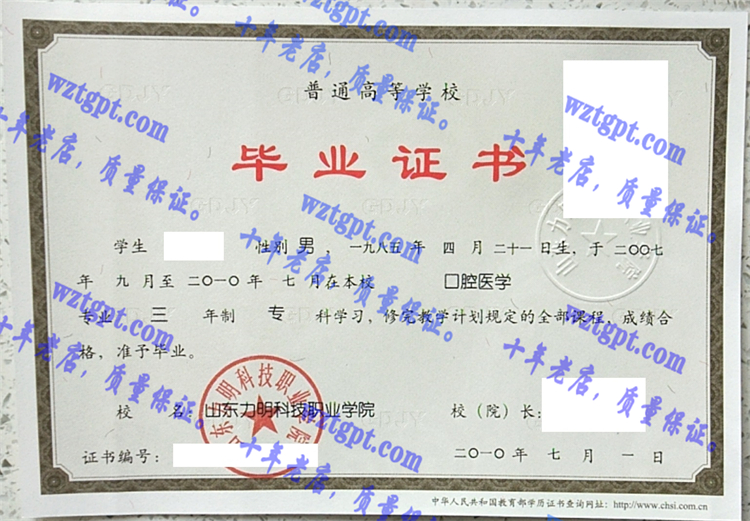 普通高等学校
毕业证书
学生 性别 男 ，一九八五 年 四 月 二十一 日生，于 二〇〇七
年 九 月至 二〇一〇 年 七 月在本校 口腔医学
专业 三 年制 专 科学习，修完教学计划规定的全部课程，成绩合
格，准予毕业。
校 名：山东力明科技职业学院 校（院）长：
证书编号： 二〇一〇 年 七 月 一 日
中华人民共和国教育部学历证书查询网址：http://www.chsi.com.cn
山东力明科技职业学院
wztgpt.com
十年老店，质量保证。
wztgpt.com
十年老店，质量保证。
wztgpt.com
十年老店，质量保证。
wztgpt.com
十年老店，质量保证。
wztgpt.com
十年老店，质量保证。
wztgpt.com
十年老店，质量保证。
wztgpt.com
十年老店，质量保证。